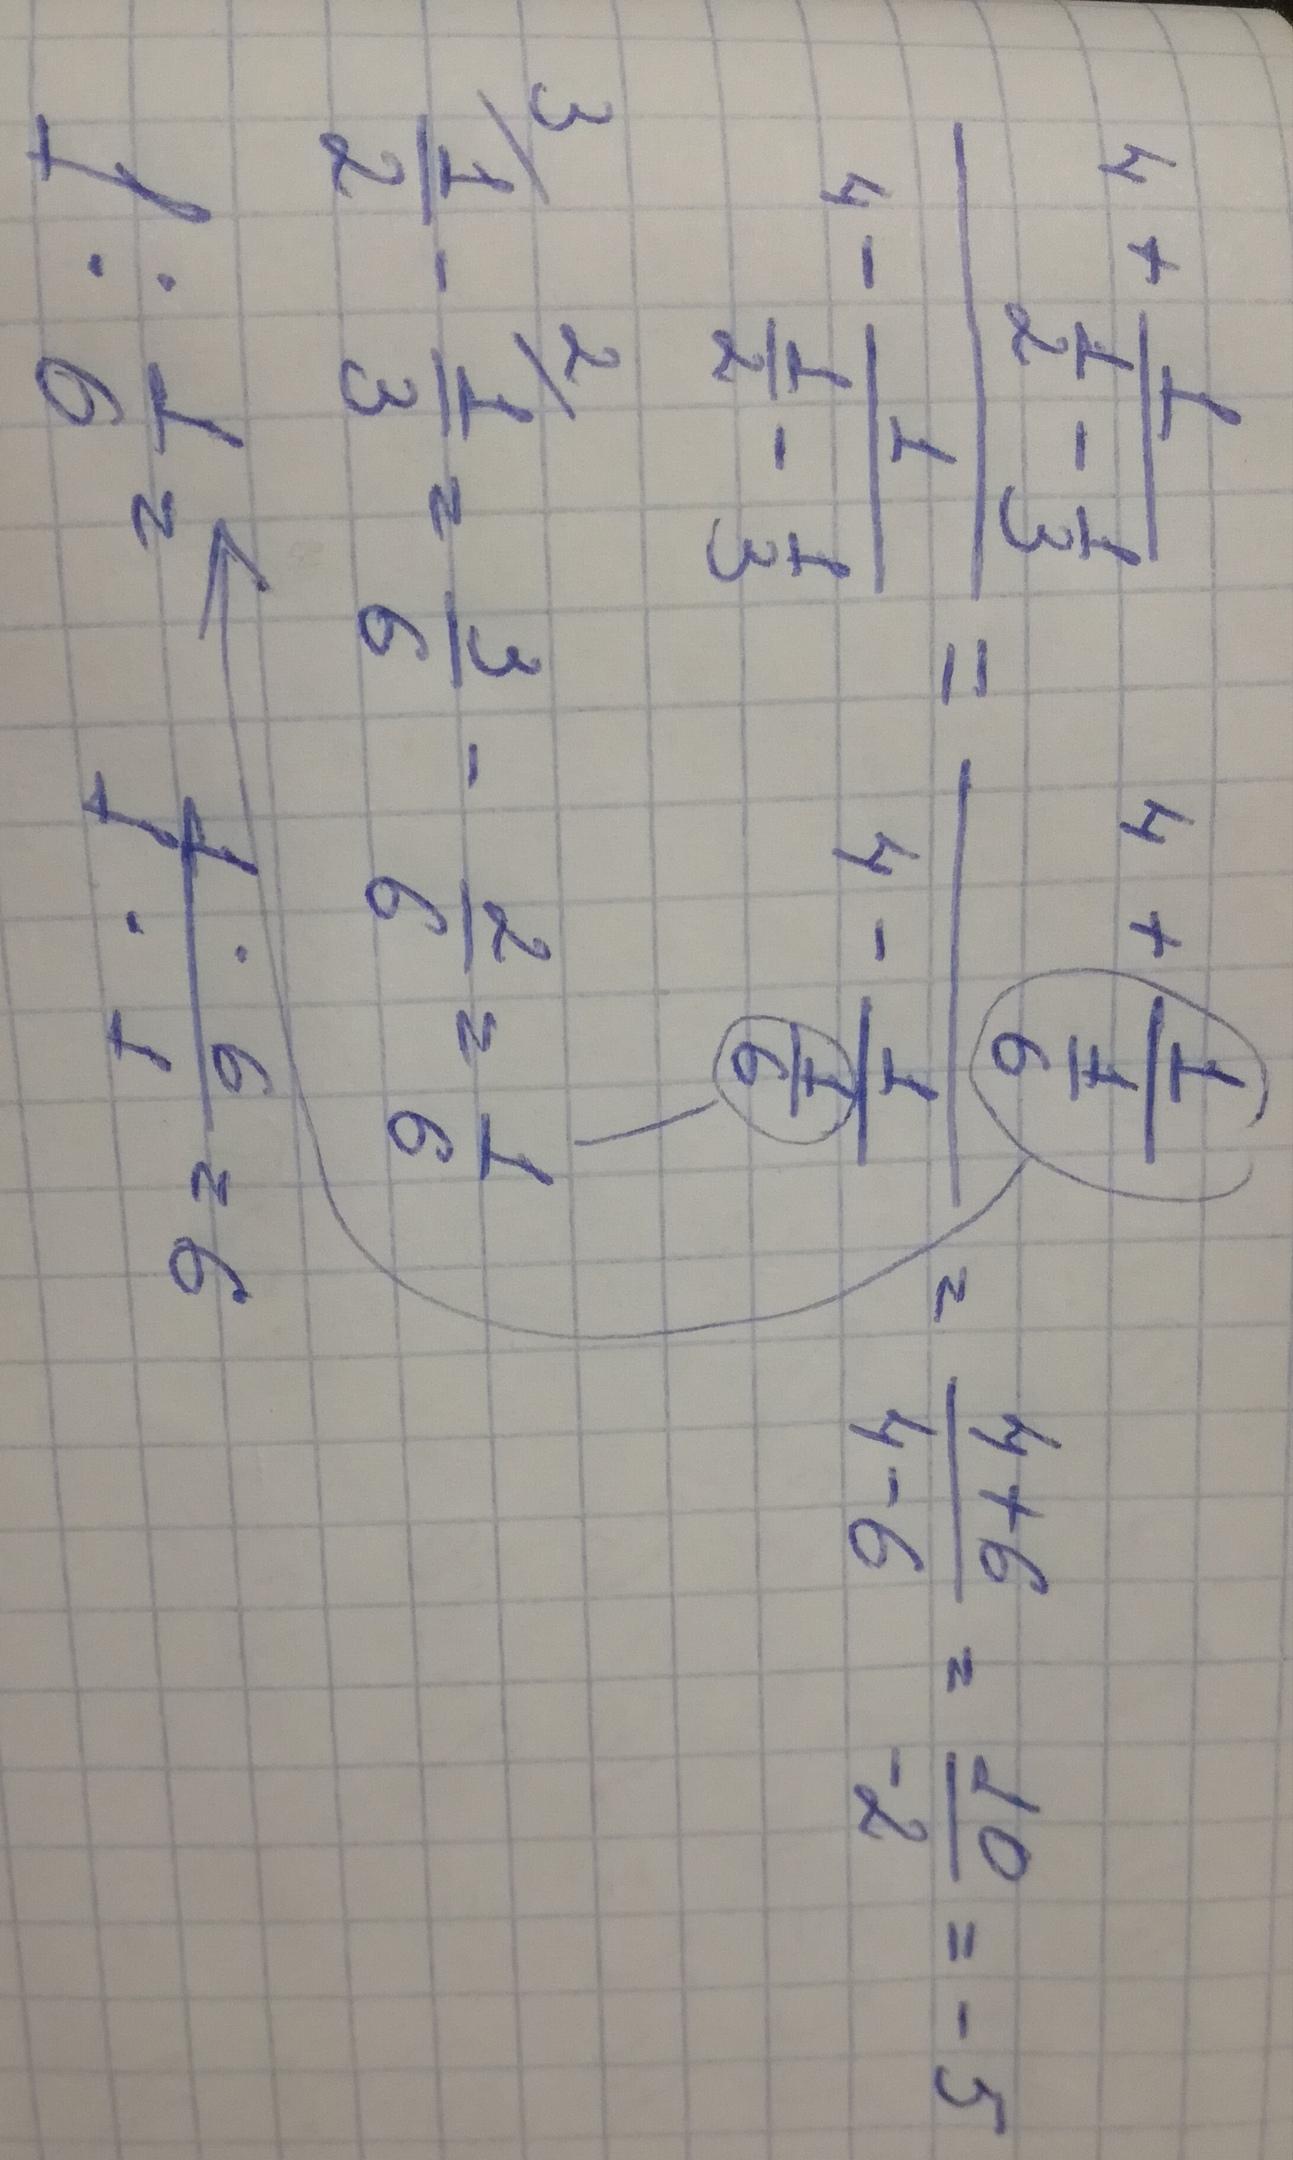 (4 + 1/(1/2 - 1/3)) / (4 - 1/(1/2 - 1/3)) = (4 + 1/(1/6)) / (4 - 1/(1/6)) = (4+6)/(4-6) = 10/-2 = -5
3/ 1/2 - 2/ 1/3 = 3/6 - 2/6 = 1/6
1/1 : 1/6 = (1 · 6)/(1 · 1) = 6